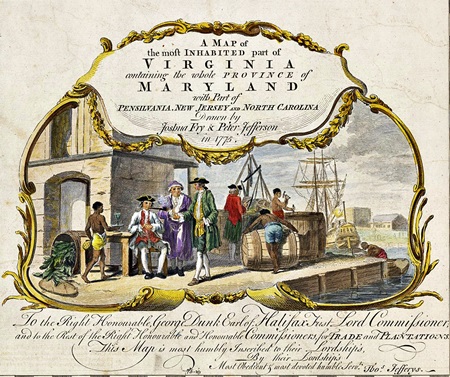 A MAP of
the most INHABITED part of
VIRGINIA
containing the whole PROVINCE of
MARYLAND
with Part of
PENSILVANIA, NEW JERSEY AND NORTH CAROLINA
Drawn by
Joshua Fry & Peter Jefferson
in 1775.
To the Right Honourable, George Dunk Earl of Halifax First Lord Commissioner,
and to the Rest of the Right Honourable and Honourable Commissioners, for TRADE and PLANTATIONS,
This Map is most humbly Inscribed to their Lordship's,
By their Lordship's
Most Obedient & most devoted humble Servt. Thos. Jefferys.